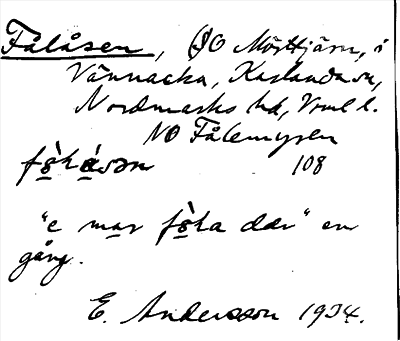 Fålåsen, SO Mörttjärn, i
Vännacka, Karlanda sn,
Nordmarks hd, Vrml l.
NO Fålemyren
108
"e mar
dær" en
gång.
E. Andersson 1934.